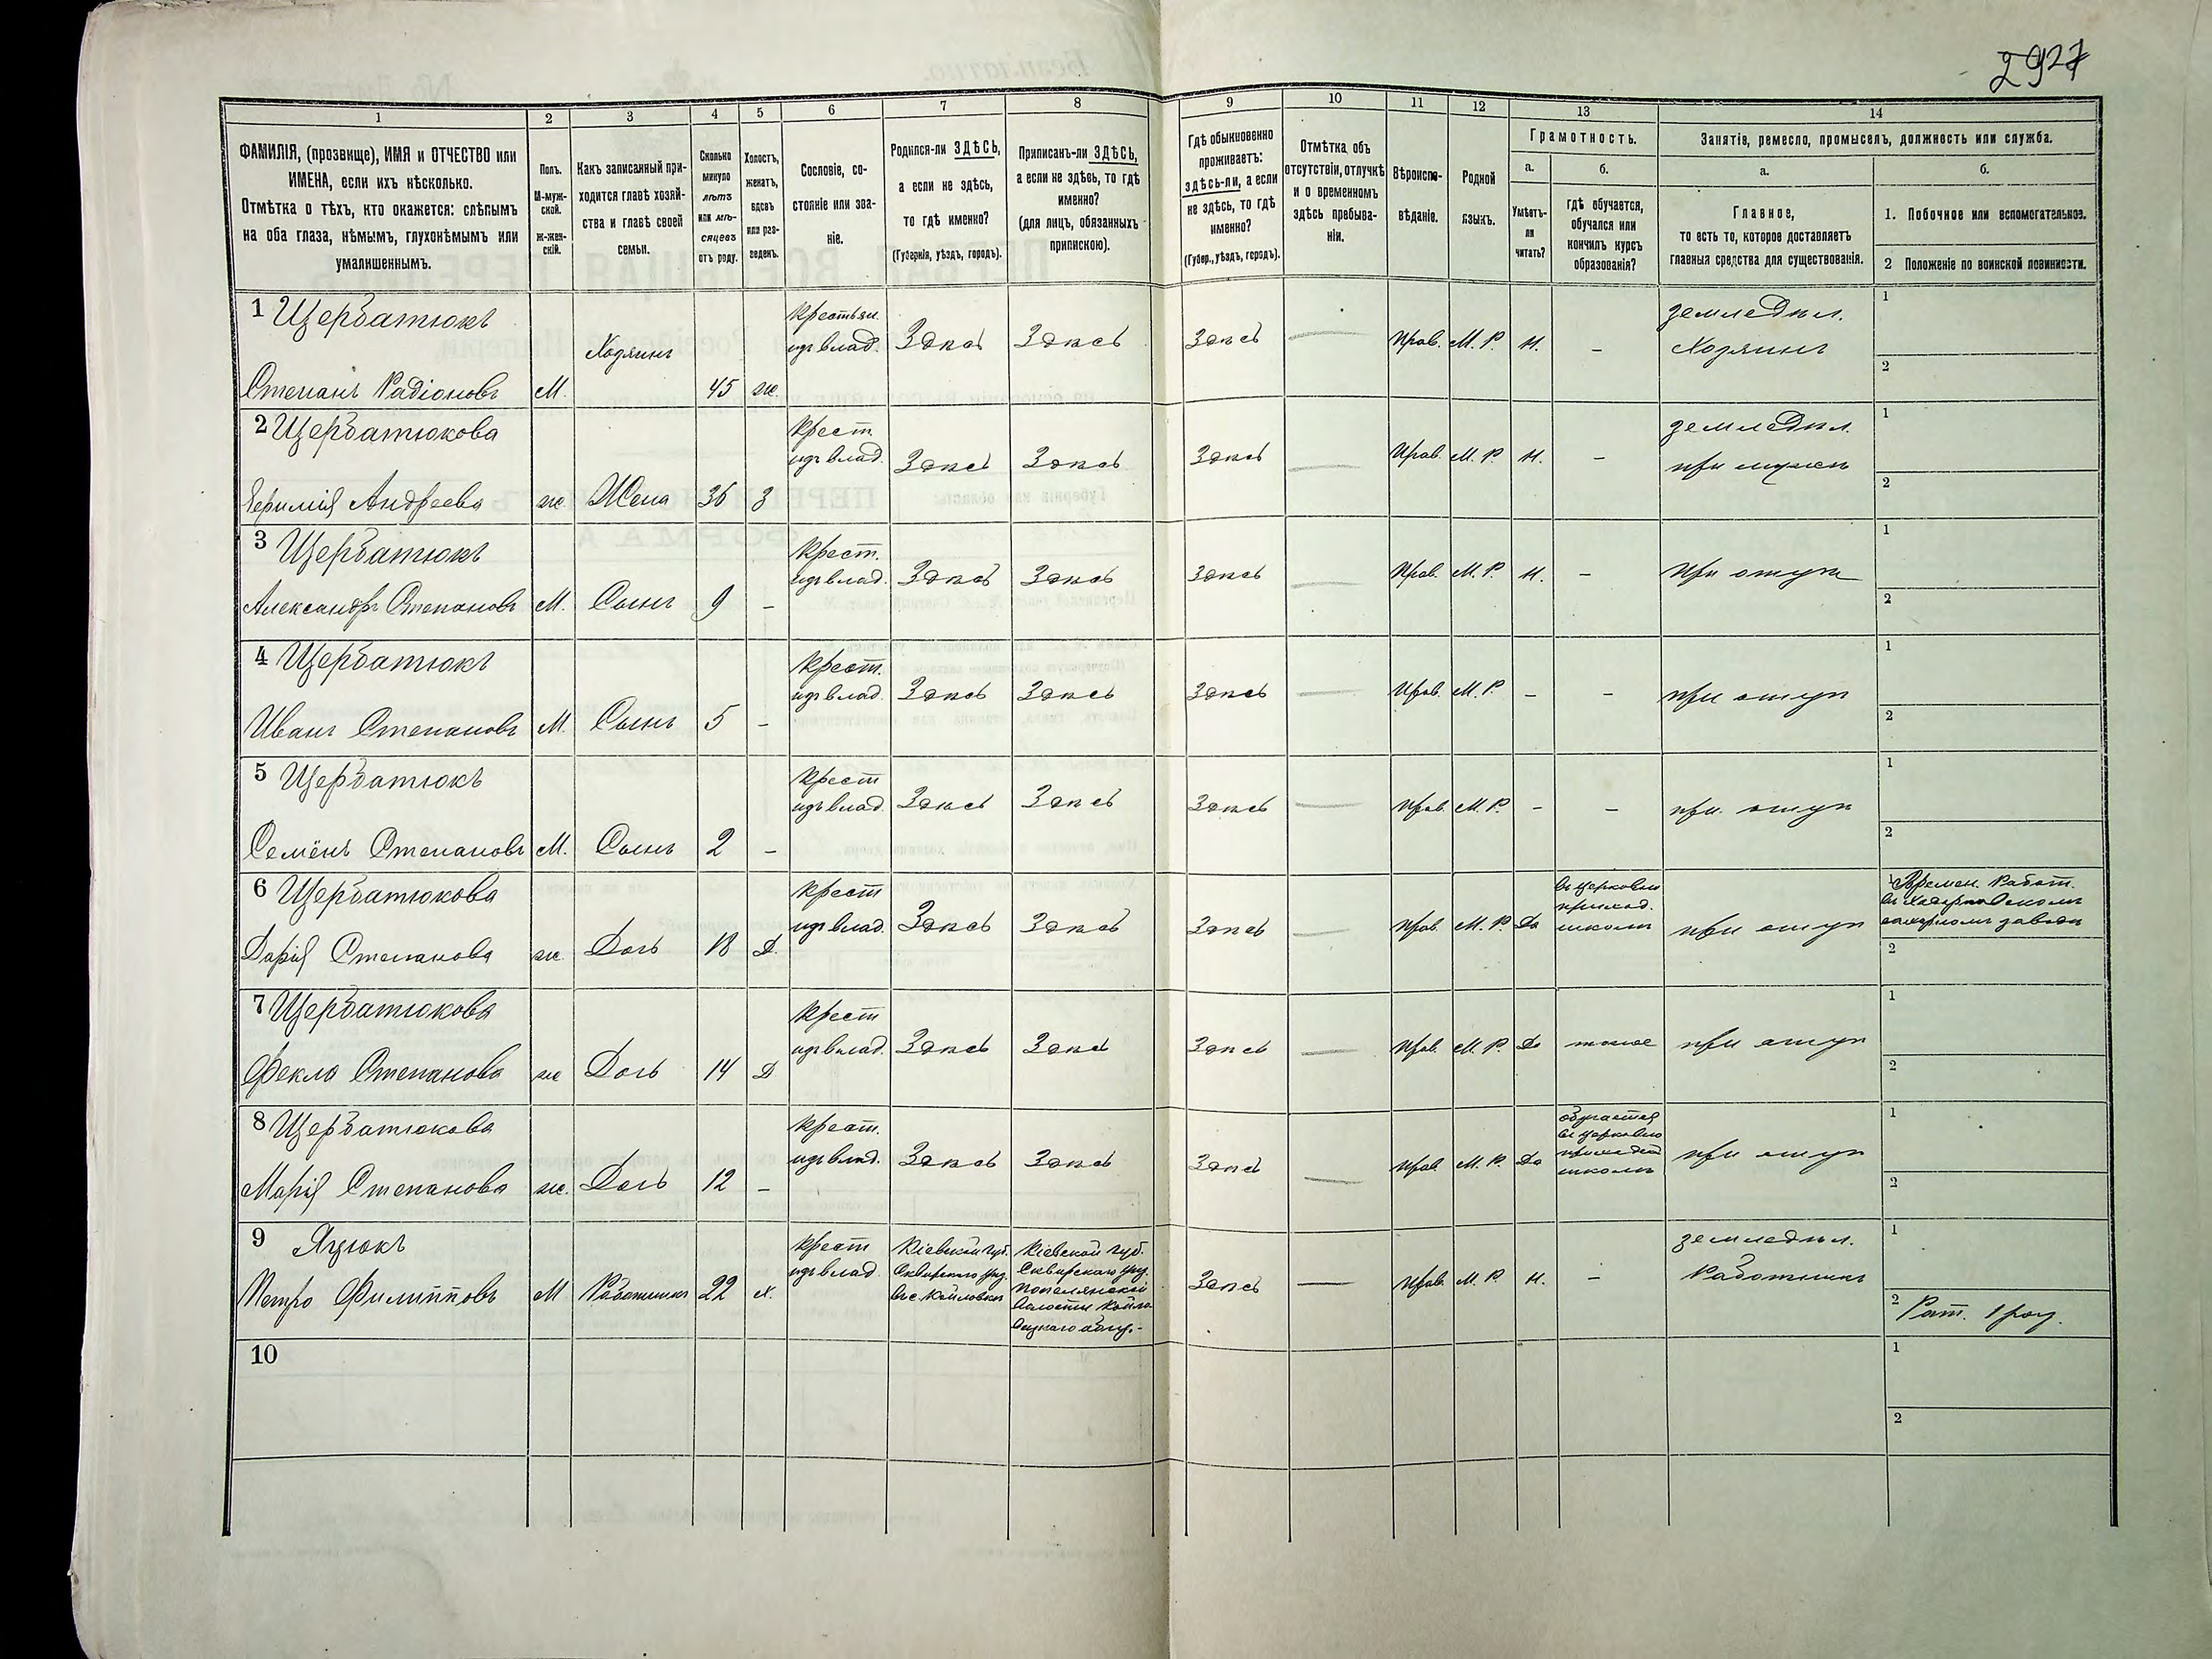 2927
1 2 3 4 5 6 7 8 9 10 11 12 13 14
ФАМИЛІЯ, (прозвище), ИМЯ и ОТЧЕСТВО или
ИМЕНА, если ихъ нѣсколько.
Отмѣтка о тѣхъ, кто окажется: слѣпымъ
на оба глаза, нѣмымъ, глухонѣмымъ или
умалишеннымъ.
Полъ.
М-муж-
ской.
Ж-жен-
скій.
Какъ записанный при-
ходится главѣ хозяй-
ства и главѣ своей
семьи.
Сколько
минуло
лѣтъ
или мѣ-
сяцевъ
отъ роду.
Холостъ,
женатъ,
вдовъ
или раз-
веденъ.
Сословіе, со-
стояніе или зва-
ніе.
Родился-ли ЗДѢСЬ,
а если не здѣсь,
то гдѣ именно?
(Губернія, уѣздъ, городъ).
Приписанъ-ли ЗДѢСЬ,
а если не здѣсь, то гдѣ
именно?
(для лицъ, обязанныхъ
припискою).
Гдѣ обыкновенно
проживаетъ:
здѣсь-ли, а если
не здѣсь, то гдѣ
именно?
(Губер., уѣздъ, городъ).
Отмѣтка объ
отсутствіи, отлучкѣ
и о временномъ
здѣсь пребыва-
ніи.
Вѣроиспо-
вѣданіе.
Родной
языкъ.
Грамотность.
а. б.
Умѣетъ-
ли
читать?
гдѣ обучается,
обучался или
кончилъ курсъ
образованія?
Занятіе, ремесло, промыселъ, должность или служба.
а. б.
Главное,
то есть то, которое доставляетъ
главныя средства для существованія.
1. Побочное или вспомогательное.
2 Положеніе по воинской повинности.
1 Щербатюкъ Крестьян. земледѣл. 1
Хозяинъ изъ влад. Здѣсь Здѣсь Здѣсь — Прав. М. Р. Н. – Хозяинъ
Степанъ Радіоновъ М. 45 ж. 2
2 Щербатюкова Крест. земледѣл. 1
изъ влад. Здѣсь Здѣсь Здѣсь — Прав. М. Р. Н. – при мужѣ
Андреева ж. Жена 36 З 2
3 Щербатюкъ Крест. 1
изъ влад. Здѣсь Здѣсь Здѣсь — Прав. М. Р. Н. – при отцѣ
Александръ Степановъ М. Сынъ 9 – 2
4 Щербатюкъ Крест. 1
изъ влад. Здѣсь Здѣсь Здѣсь — Прав. М. Р. – – при отцѣ
Иванъ Степановъ М. Сынъ 5 – 2
5 Щербатюкъ Крест 1
изъ влад. Здѣсь Здѣсь Здѣсь — Прав. М. Р. – – при отцѣ
Семёнъ Степановъ М. Сынъ 2 – 2
6 Щербатюкова Крест въ церковн. 1 Времен. Работ.
приход. въ
изъ влад. Здѣсь Здѣсь Здѣсь — Прав. М. Р. Да школѣ при отцѣ сахарномъ заводѣ
Дарія Степанова ж. Дочь 18 Д. 2
7 Щербатюкова Крест 1
изъ влад. Здѣсь Здѣсь Здѣсь — Прав. М. Р. Да тоже при отцѣ
Фекла Степанова ж Дочь 14 Д 2
8 Щербатюкова Крест. обучается 1
въ церковно
изъ влад. Здѣсь Здѣсь Здѣсь — Прав. М. Р. Да приходской при отцѣ
школѣ
Марія Степанова ж. Дочь 12 – 2
9 Яцюкъ Крест Кіевской губ. Кіевской губ. земледѣл. 1
изъ влад. Сквирскаго уѣз. Сквирскаго уѣз. Здѣсь — Прав. М. Р. Н. – Работникъ
Петро Филипповъ М Работникъ 22 х. въ с. Койловкѣ Попелянской
Волости
2 Рат. 1 раз.
10 1
2